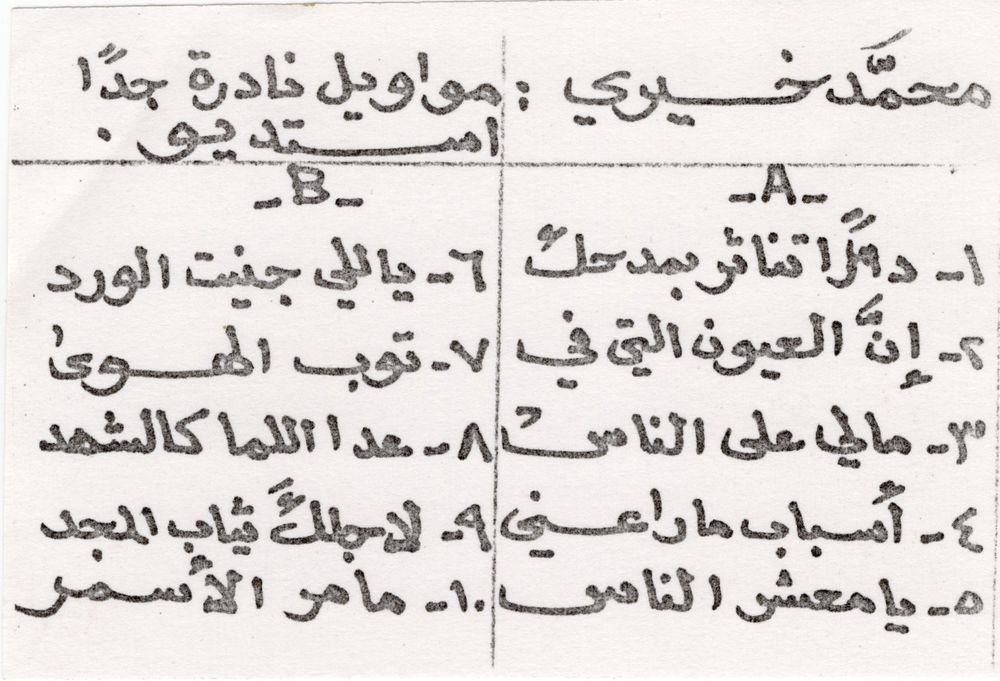 محمَّد خيري : مواويل نادرة جدًا
استديو .
-A-
١- تناثر بمدحك
٢- إنَّ العيون التي في
٣- مالي على الناس
٤- أسباب ما راعني
٥- يا معشر الناس
-B-
٦- ياللي جنيت الورد
٧- توب الهوى
٨- عدا اللما كالشهد
٩- لاجلكَ ثياب المجد
١٠- ما مر الأسمر